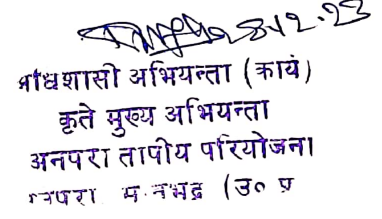 28.12.23
अधिशासी अभियन्ता (कार्य)
कृते मुख्य अभियन्ता
अनपरा तापीय परियोजना
अनपरा (उ० प्र